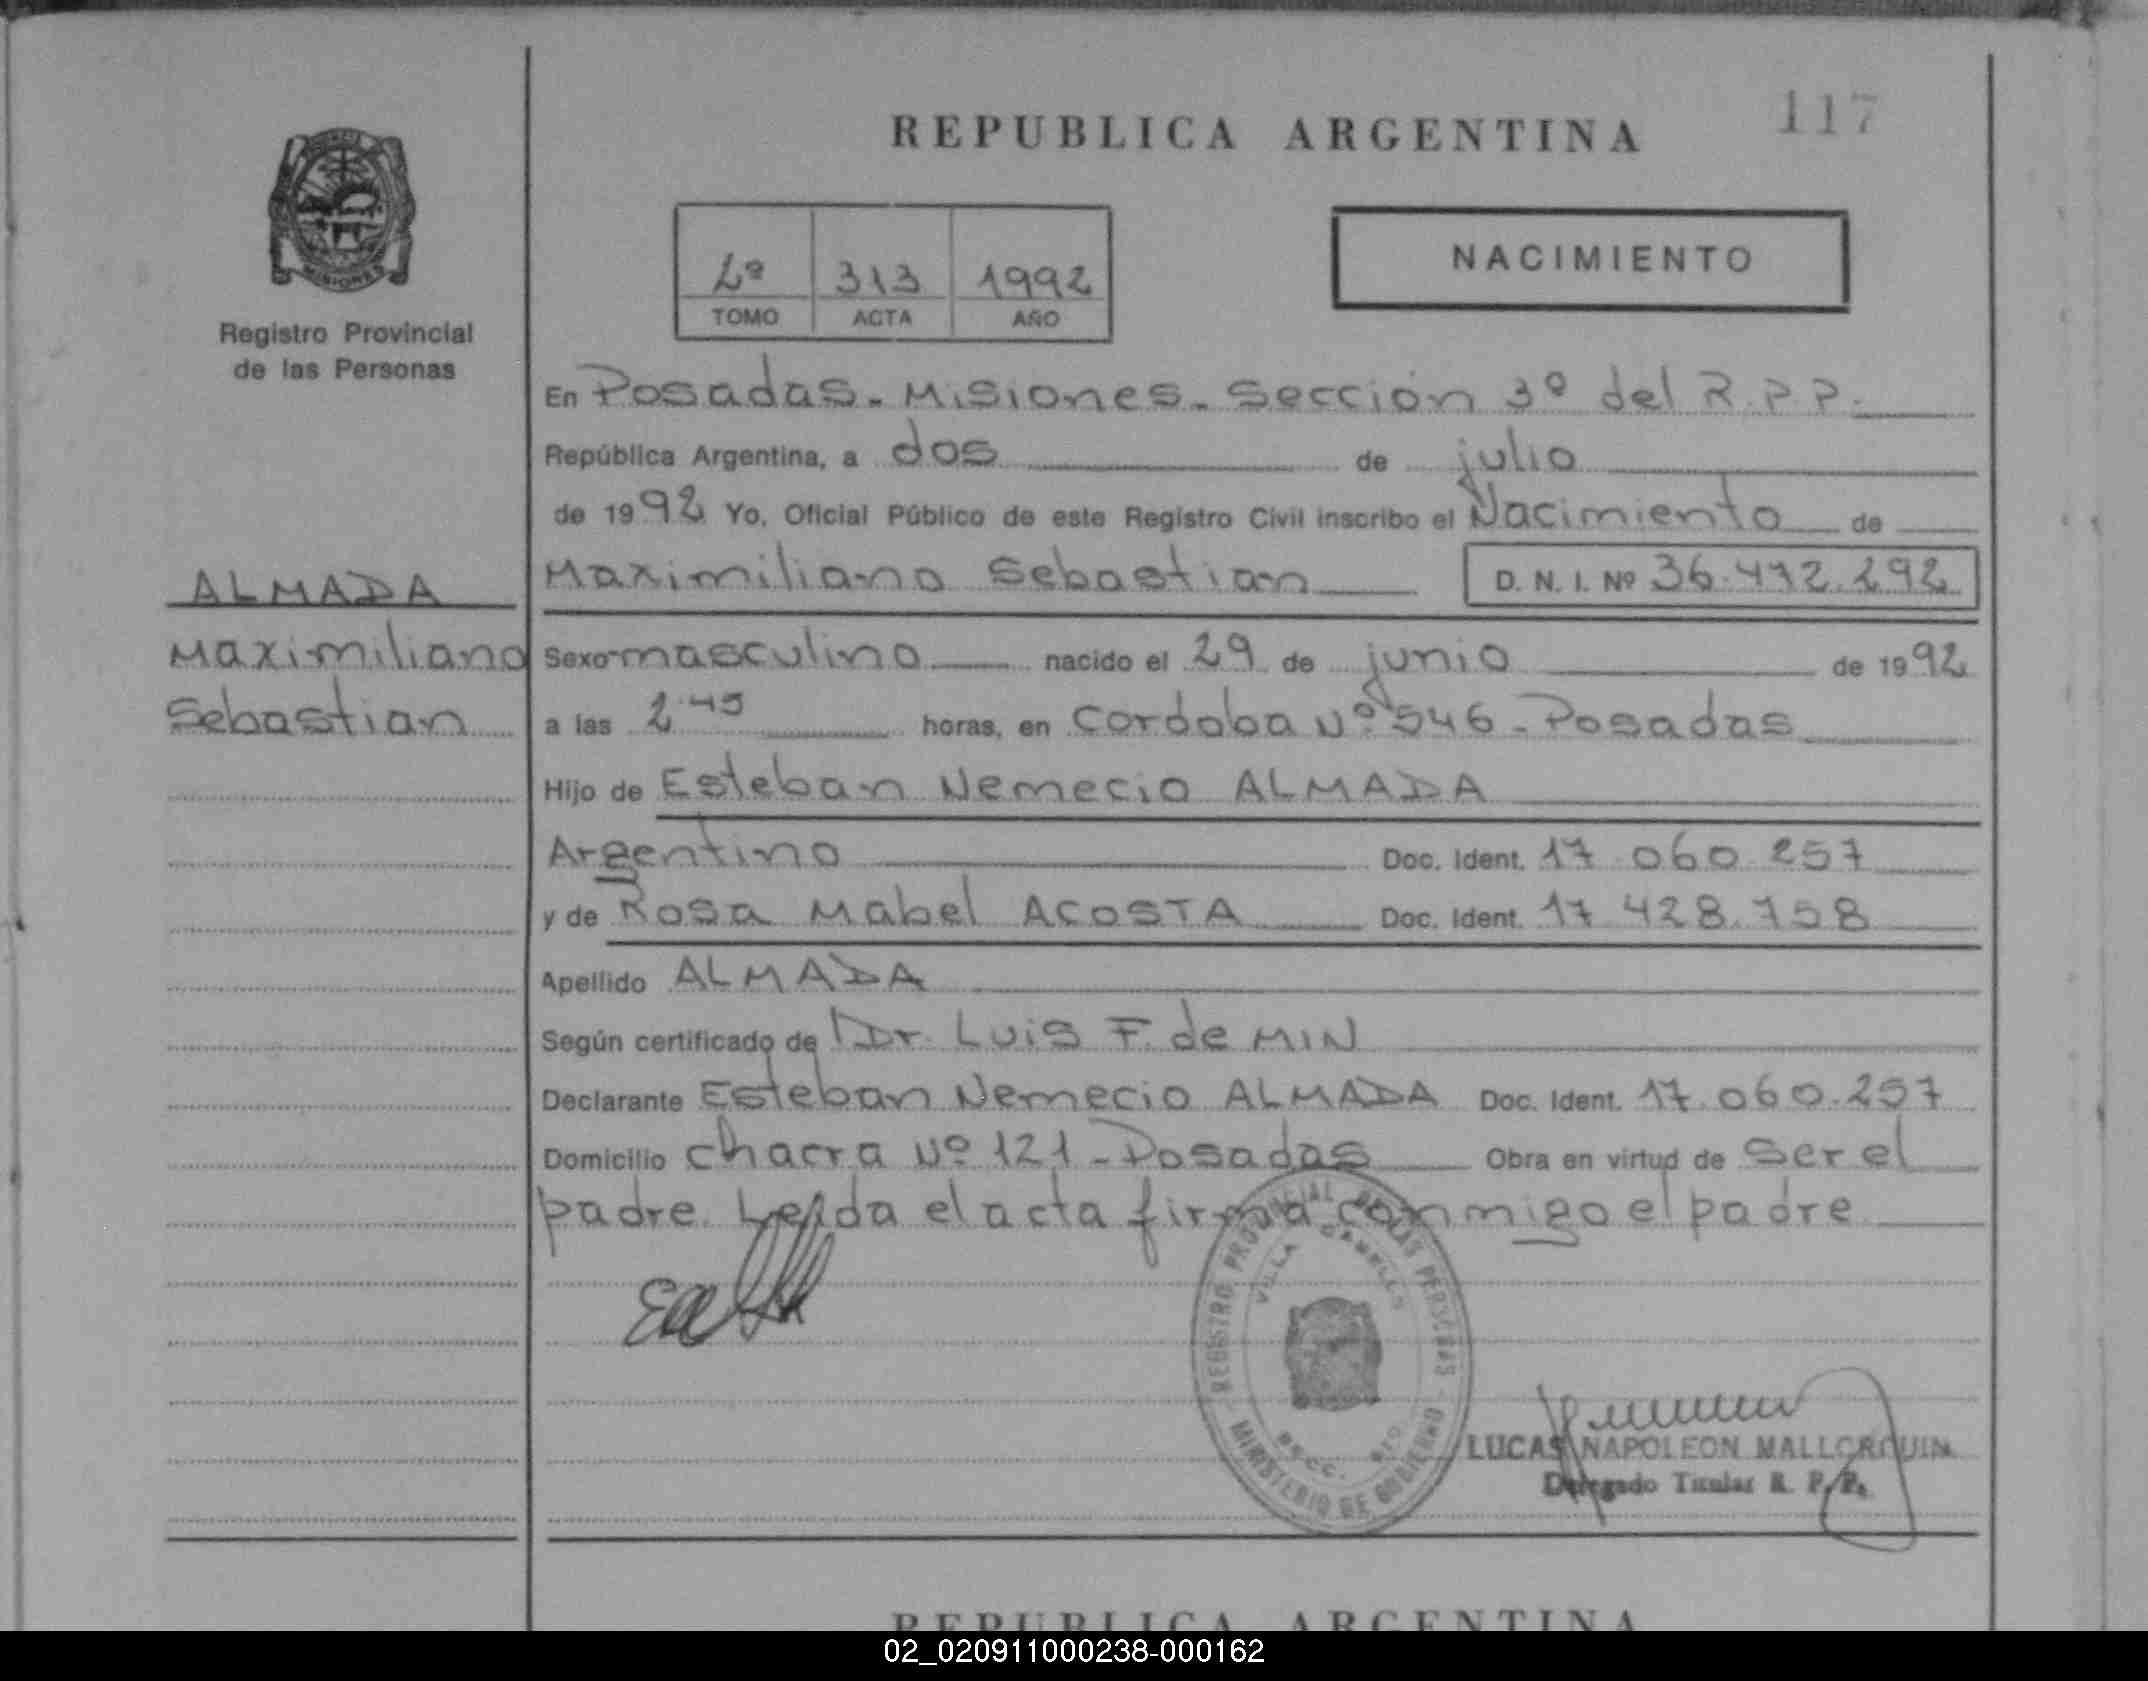 117
REPUBLICA ARGENTINA
NACIMIENTO
2º 313 1992
TOMO ACTA AÑO
MISIONES
Registro Provincial
de las Personas
En Posadas - Misiones - Sección 3º del R.P.P.
República Argentina, a dos de julio
de 1992 Yo, Oficial Público de este Registro Civil inscribo el Nacimiento de
Maximiliano Sebastian D. N. I. Nº 36.472.292
ALMADA
Maximiliano
Sebastian
Sexo masculino nacido el 29 de junio de 1992
a las 2.45 horas, en Cordoba Nº 546 - Posadas
Hijo de Esteban Nemecio ALMADA
Argentino Doc. Ident. 17.060.257
y de Rosa Mabel ACOSTA Doc. Ident. 17.428.758
Apellido ALMADA
Según certificado de Dr. Luis F. de MIN
Declarante Esteban Nemecio ALMADA Doc. Ident. 17.060.257
Domicilio chacra Nº 121 - Posadas Obra en virtud de ser el
padre. Leída el acta firma conmigo el padre
REGISTRO PROVINCIAL DE LAS PERSONAS
VILLA
SECC.
MINISTERIO DE GOBIERNO
LUCAS NAPOLEON MALLORQUIN
Delegado Titular R. P. P.
REPUBLICA ARGENTINA
02_020911000238-000162